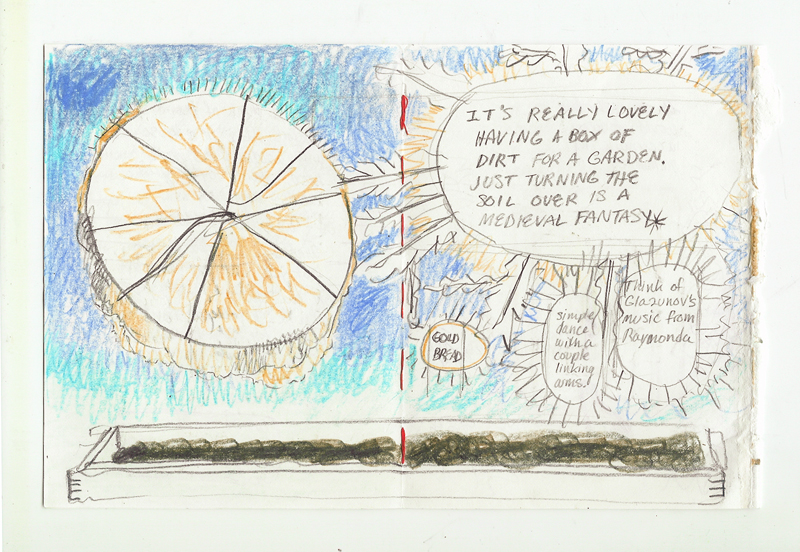 IT'S REALLY LOVELY
HAVING A BOX OF
DIRT FOR A GARDEN.
JUST TURNING THE
SOIL OVER IS A
MEDIEVAL FANTASY*
GOLD
BREAD
simple
dance
with a
couple
linking
arms.
Think of
Glazunov's
music from
Raymonda